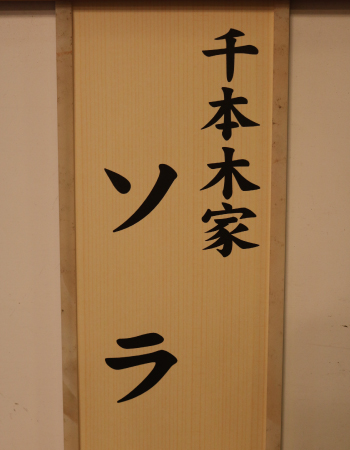 千本木家
ソラ